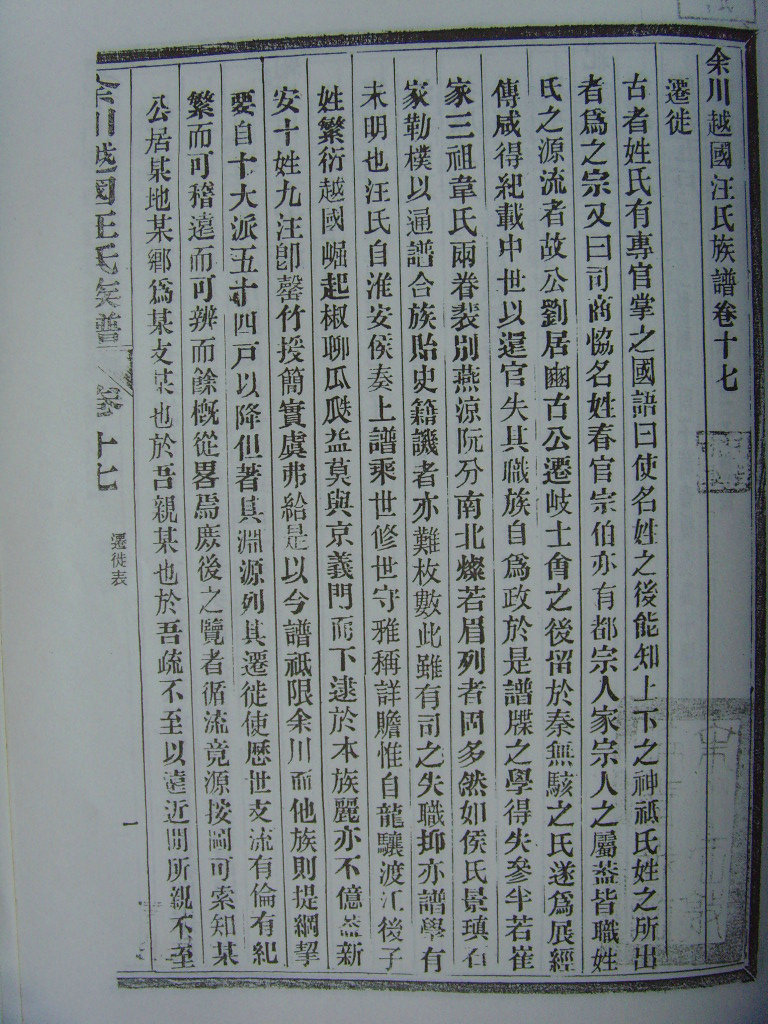 余川越國汪氏族譜卷十七
遷徙
古者姓氏有專官掌之國語曰使名姓之後能知上下之神祇氏姓之所出
者爲之宗又曰司商恊名姓春官宗伯亦有都宗人家宗人之屬葢皆職姓
氏之源流者故公劉居豳古公遷岐士會之後留於秦無駭之氏遂爲展經
傳咸得紀載中世以還官失其職族自爲政於是譜牒之學得失參半若崔
家三祖韋氏兩眷裴別燕涼阮分南北燦若眉列者固多然如侯氏景瑱石
家勒樸以通譜合族貽史籍譏者亦難枚數此雖有司之失職抑亦譜學有
未明也汪氏自淮安侯奏上譜乘世修世守雅稱詳贍惟自龍驤渡江後子
姓繁衍越國崛起椒聊瓜瓞益莫與京義門而下逮於本族麗亦不億葢新
安十姓九汪卽罄竹授簡實虞弗給是以今譜祗限余川而他族則提綱挈
要自十大派五十四戸以降但著其淵源列其遷徙使歷世支流有倫有紀
繁而可稽遠而可辨而餘槪從畧焉庶後之覽者循流竟源按圖可索知某
公居某地某鄉爲某支某也於吾親某也於吾疏不至以遠近間所親不至
余川越國汪氏族譜
卷十七
遷徙表
一